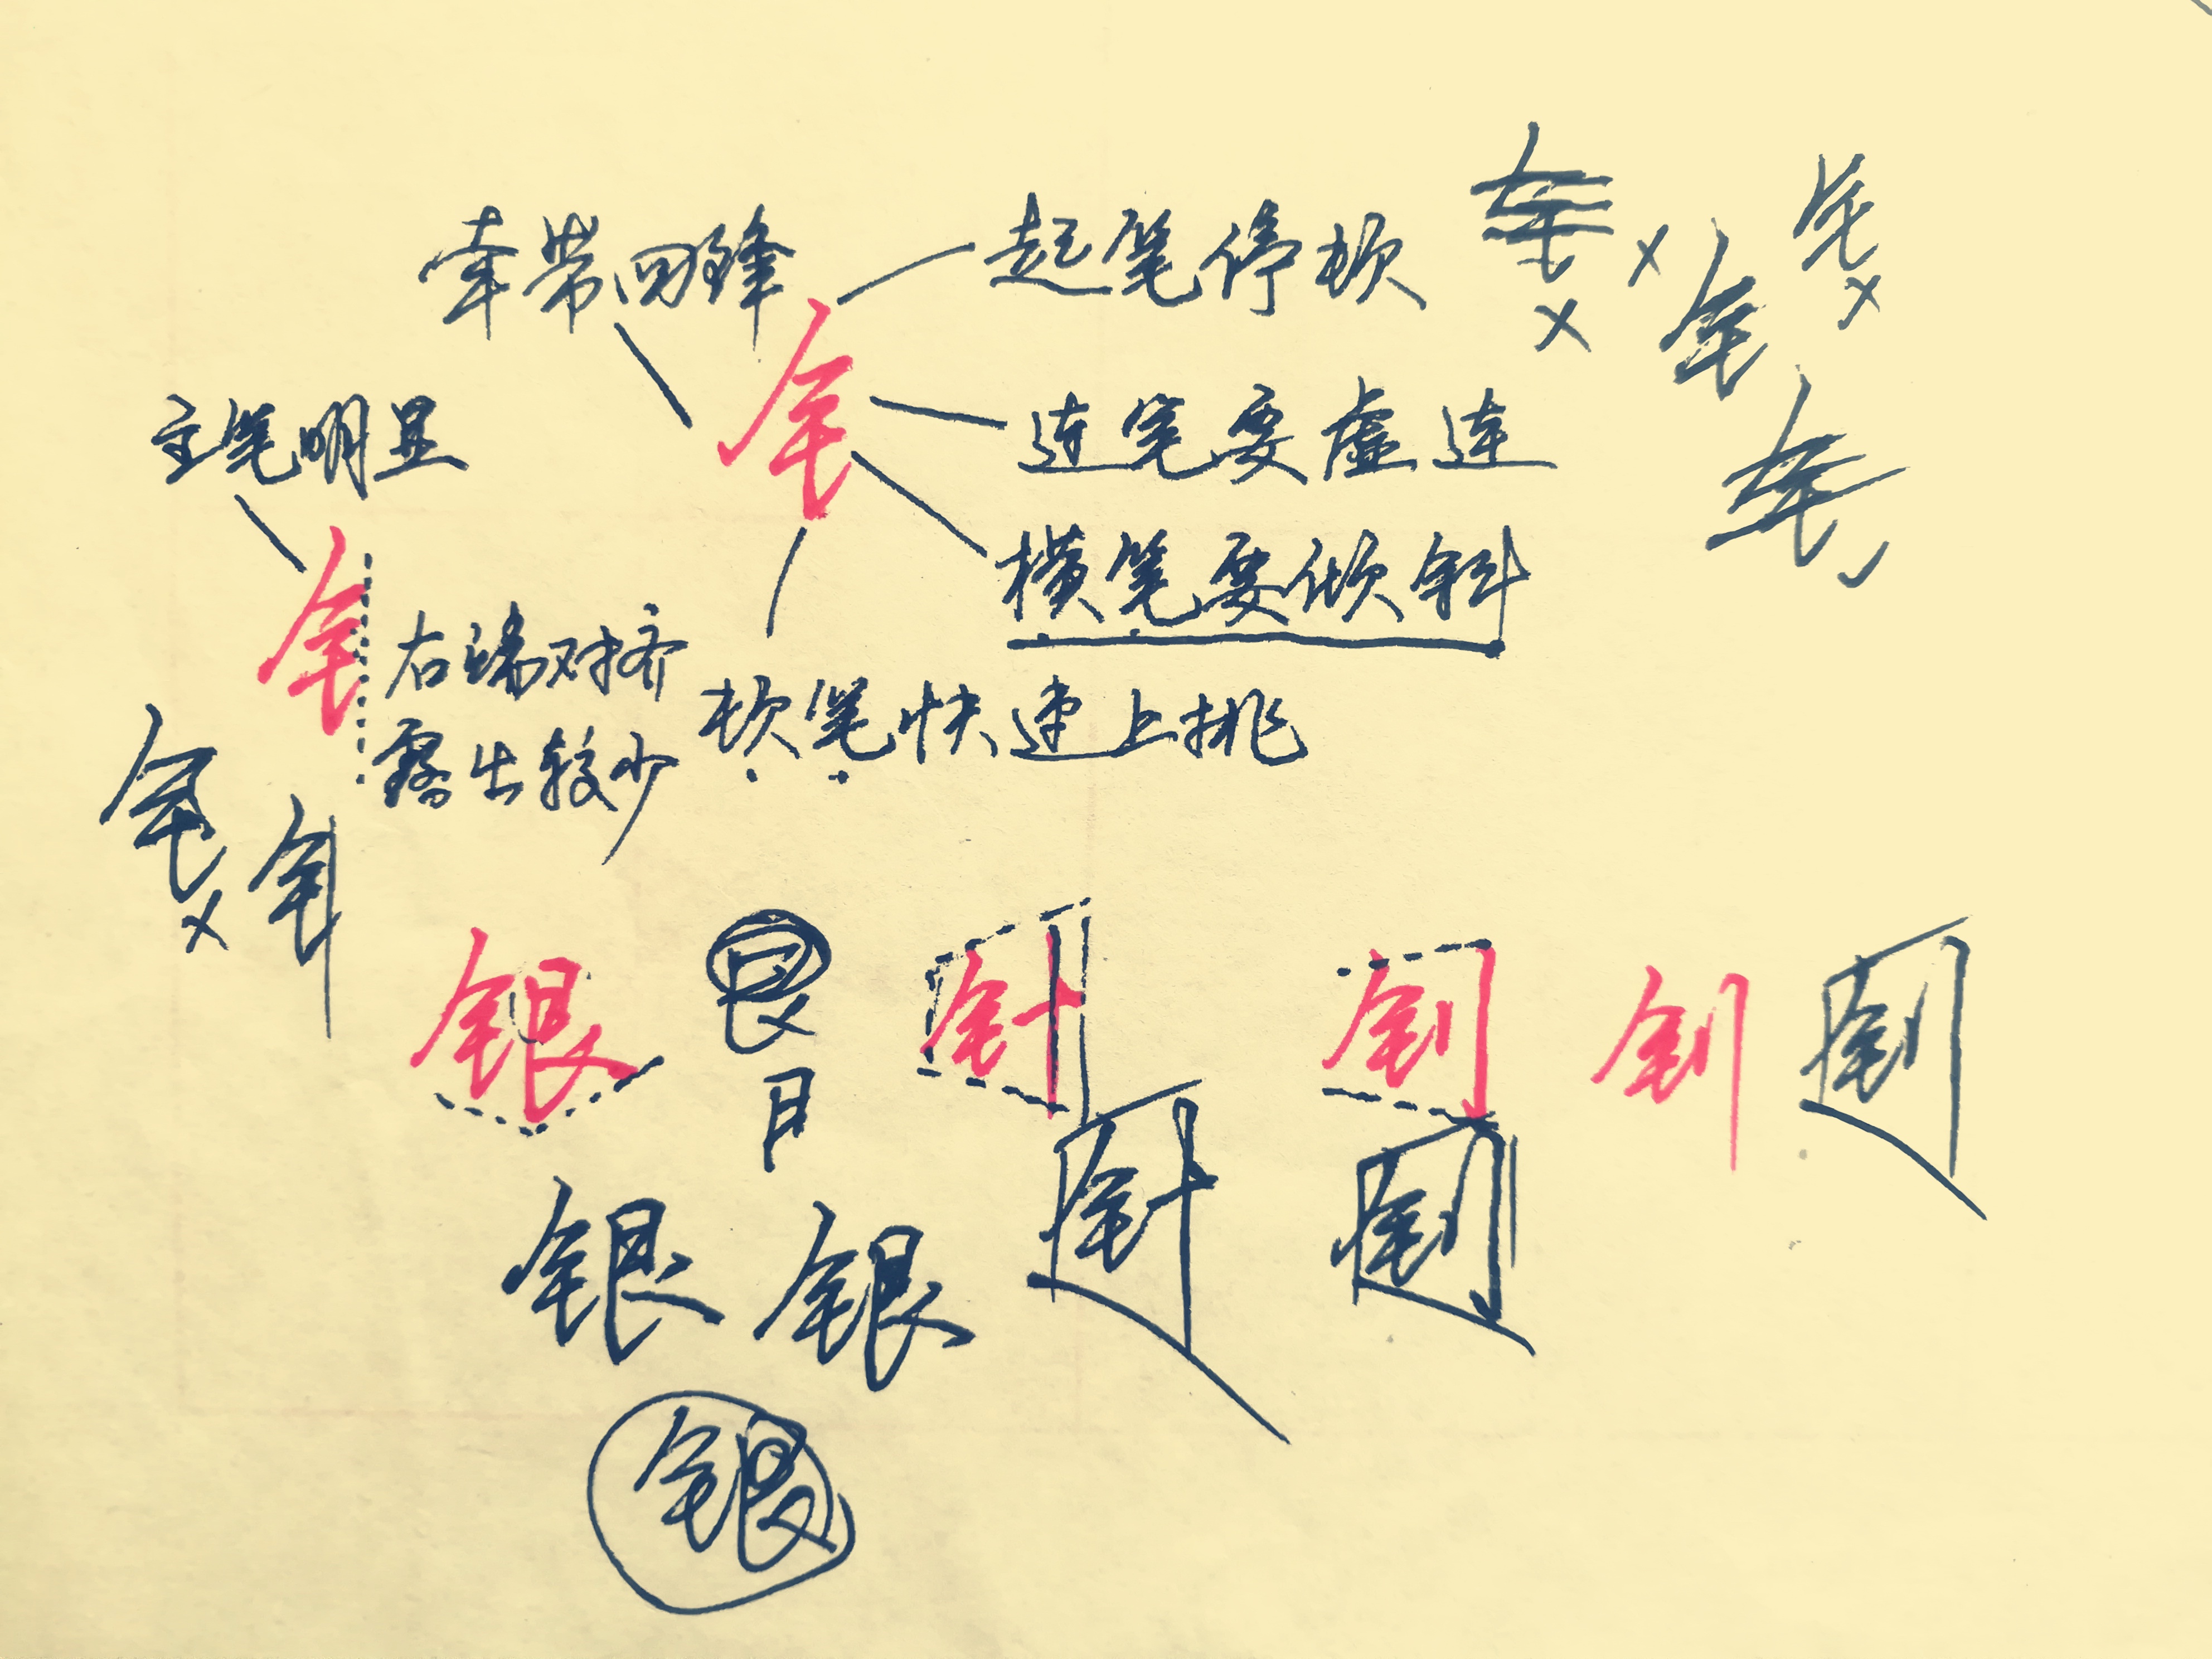 牵带回锋
起笔停顿
钅
主笔明显
连笔要虚连
横笔要倾斜
钅
右端对齐
露出较少
软笔快速上挑
钅
钅
银
艮
针
钊
钊
钊
针
钊
银
银
银